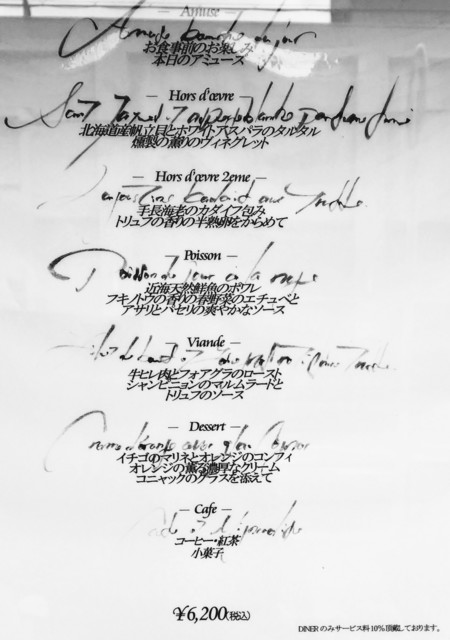 — Amuse —
Amuse bouche du jour
お食事前のお楽しみ
本日のアミューズ
— Hors d'œvre —
北海道産帆立貝とホワイトアスパラのタルタル
燻製の薫りのヴィネグレット
— Hors d'œvre 2eme —
手長海老のカダイフ包み
トリュフの香りの半熟卵をからめて
— Poisson —
Poisson du jour à la vapeur
近海天然鮮魚のポワレ
フキノトウの香りの春野菜のエチュベと
アサリとパセリの爽やかなソース
— Viande —
牛ヒレ肉とフォアグラのロースト
シャンピニョンのマルムラードと
トリュフのソース
— Dessert —
イチゴのマリネとオレンジのコンフィ
オレンジの薫る濃厚なクリーム
コニャックのグラスを添えて
— Cafe —
コーヒー・紅茶
小菓子
¥6,200(税込)
DINERのみサービス料10%頂戴しております。